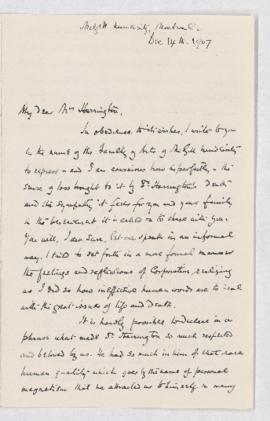 McGill University, Montreal
Dec 14th. 1907
My dear Mrs Harrington,
In obedience to its wishes, I write to you
in the name of the Faculty of Arts of McGill University
to express - and I am conscious how imperfectly - the
sense of loss brought to it by Dr. Harrington's death
and the sympathy it feels for you and your family
in the bereavement it is called on to share with you.
You will, I am sure, let me speak in an informal
way. I tried to set forth in a more formal manner
the feelings and reflections of Corporation, realizing
as I did so how ineffective human words are to deal
with the great issues of life and death.
It is hardly possible to declare in a
phrase what made Dr. Harrington so much respected
and beloved by us. He had so much in him of that rare
human quality which goes by the name of personal
magnetism that he attracted us to him by in many